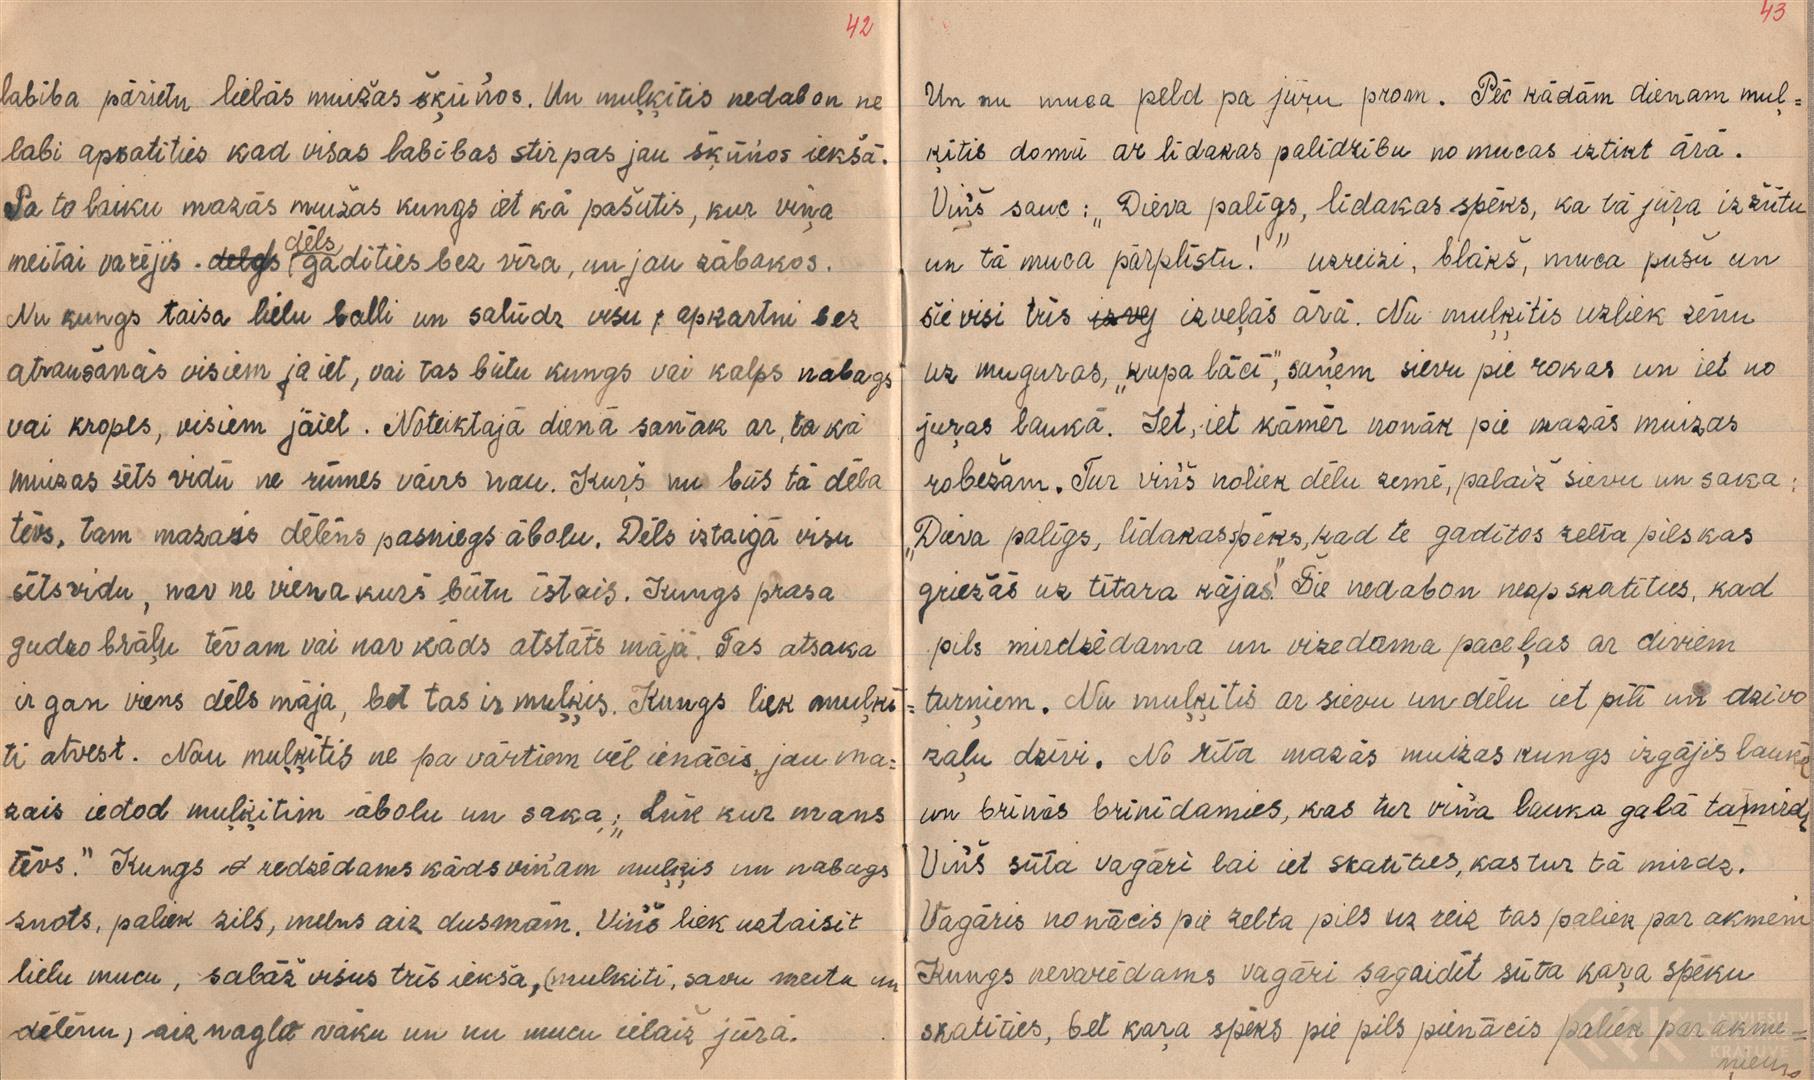 42
labība pārietu lielās muižas šķūņos. Un muļķītis nedabon ne
labi apskatīties kad visas labības stirpas jau šķūņos iekšā.
Pa to laiku mazās muižas kungs iet kā pašūtis, kur viņa
meitai varējis dēls gadīties bez vīra, un jau zābakos.
Nu kungs taisa lielu balli un salūdz visu apkārtni bez
atraušanās visiem jaiet, vai tas būtu kungs vai kalps nabags
vai kropls, visiem jāiet. Noteiktajā dienā sanāk ar, ta kā
muizas sēts vidū ne rūmes vairs nau. Kurš nu būs tā dēla
tēvs, tam mazais dēlēns pasniegs ābolu. Dēls iztaigā visu
sētsvidu, nav ne viena kurš būtu īstais. Kungs prasa
gudro brāļu tēvam vai nav kāds atstāts mājā. Tas atsaka
ir gan viens dēls māja, bet tas ir muļķis. Kungs liek muļķī=
ti atvest. Nau muļķītis ne pa vārtiem vēl ienācis, jau ma=
zais iedod muļķitim ābolu un saka; „Lūk kur mans
tēvs." Kungs redzēdams kāds viņam muļķis un nabags
znots, paliek zils, melns aiz dusmām. Viņš liek uztaisīt
lielu mucu, salāž visus trīs iekša, (mulkiti, savu meitu un
dēlēnu) aiznaglo vāku un nu mucu ielaiž jūrā.
43
Un nu muca peld pa jūŗu prom. Pēc kādām dienam muļ=
ķītis domū ar līdakas palīdzību no mucas iztikt ārā.
Viņš sauc: „Dieva palīgs, līdakas spēks, ka tā jūŗa izžūtu
un tā muca pārplīstu!" uzreizi, blākš, muca pušu un
šie visi trīs izveļās ārā. Nu muļķītis uzliek zēnu
uz muguras, „kupa lāci", saņem sievu pie rokas un iet no
juŗas laukā. Iet, iet kāmēr nonāk pie mazās muizas
robežām. Tur viņš noliek dēlu zemē, palaiž sievu un saka:
„Dieva palīgs, līdakas spēks, kad te gadītos zelta pils kas
griežās uz tītara kājas!" Šie nedabon neapskatīties, kad
pils mirdzēdama un vizedama paceļas ar diviem
turņiem. Nu muļķitis ar sievu un dēlu iet pilī un dzīvo
zaļu dzīvi. No rīta mazās muizas kungs izgājis laukā
un brīnās brīnīdamies, kas tur viņa lauka galā ta mirdz
Viņš sūta vagāri lai iet skatīties, kas tur tā mirdz.
Vagāris nonācis pie zelta pils uz reiz tas paliek par akmeni
Kungs nevarēdams vagāri sagaidīt sūta kaŗa spēku
skatīties, bet kaŗa spēks pie pils pienācis paliek par akme=
ņiem
LATVIEŠU
FOLKLORAS
KRĀTUVE